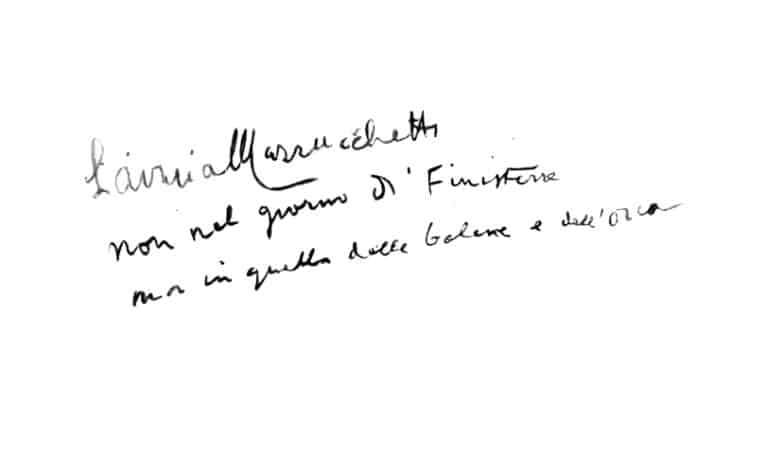 Lavinia Mazzucchetti
non nel giorno di' Finisterre
ma in quello delle balene e dell'orca